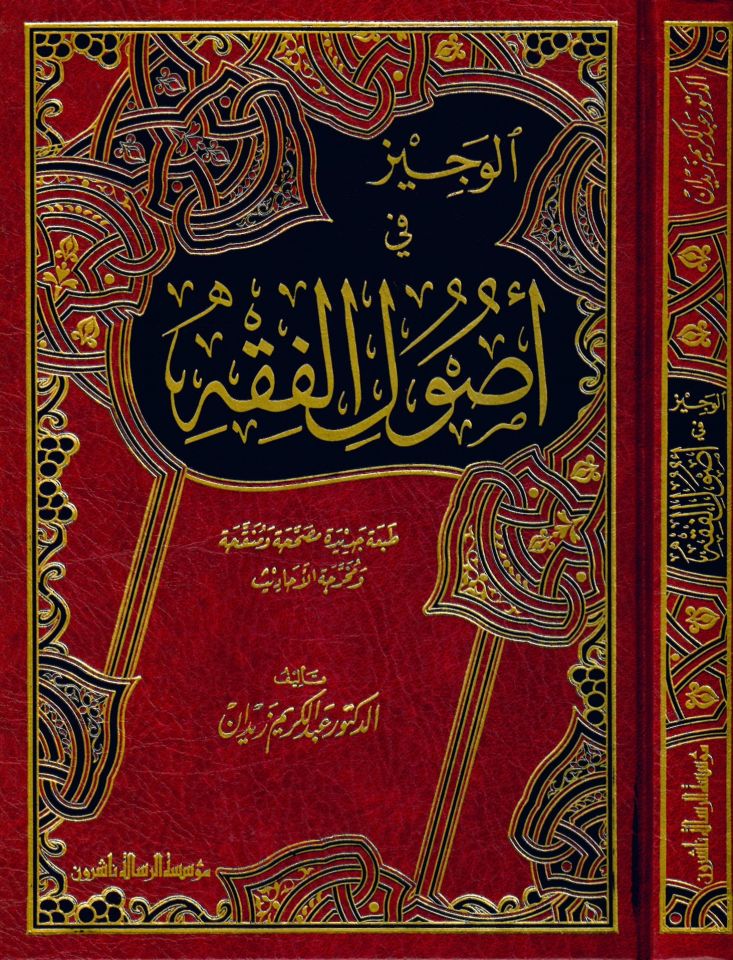 الوَجِيْز
في
أُصُولِ الفِقْهِ
طبعة جديدة مصححة ومنقحة
ومخرجة الأحاديث
تأليف
الدكتور عبد الكريم زيدان
مؤسسة الرسالة ناشرون
الدكتور عبد الكريم زيدان
الوجيز
في
أصول الفقه
مؤسسة الرسالة ناشرون